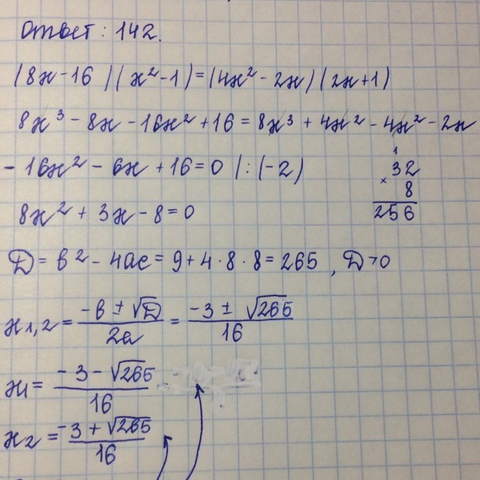 Ответ: 142.
(8x-16)(x²-1)=(4x²-2x)(2x+1)
8x³-8x-16x²+16=8x³+4x²-4x²-2x
-16x²-6x+16=0 |:(-2)
1
32
× 8
256
8x²+3x-8=0
D=b²-4ac=9+4·8·8=265, D>0
x1,2=(-b±√D)/2a=(-3±√265)/16
x1=(-3-√265)/16
x2=(-3+√265)/16